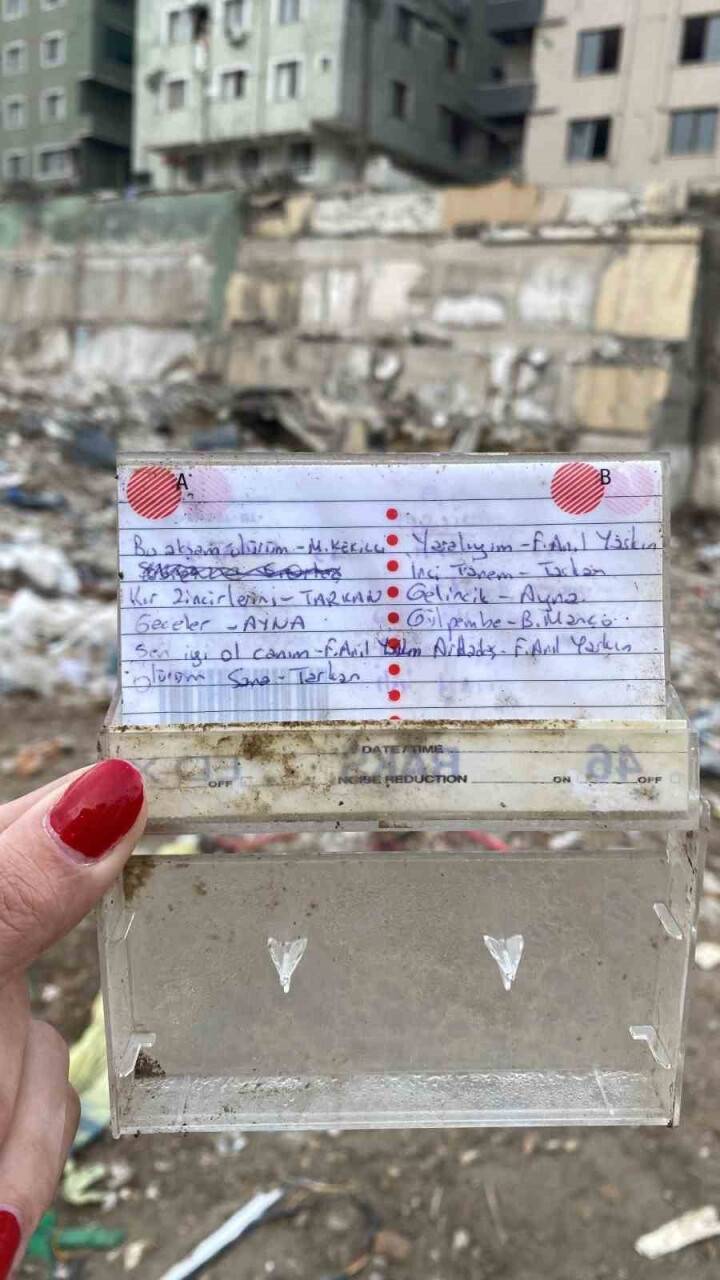 A B
Bu akşam ölürüm - M. KEKİLLİ Yaralıyım - F. Anıl Yaşkın
İnci Tanem - Tarkan
Kır Zincirlerini - TARKAN Gelincik - Ayna
Geceler - AYNA Gülpembe - B. Manço
Sen iyi ol canım - F. Anıl Arkadaş - F. Anıl Yaşkın
ölürüm Sana - Tarkan
DATE/TIME
OFF NOISE REDUCTION ON OFF
RAKS 46